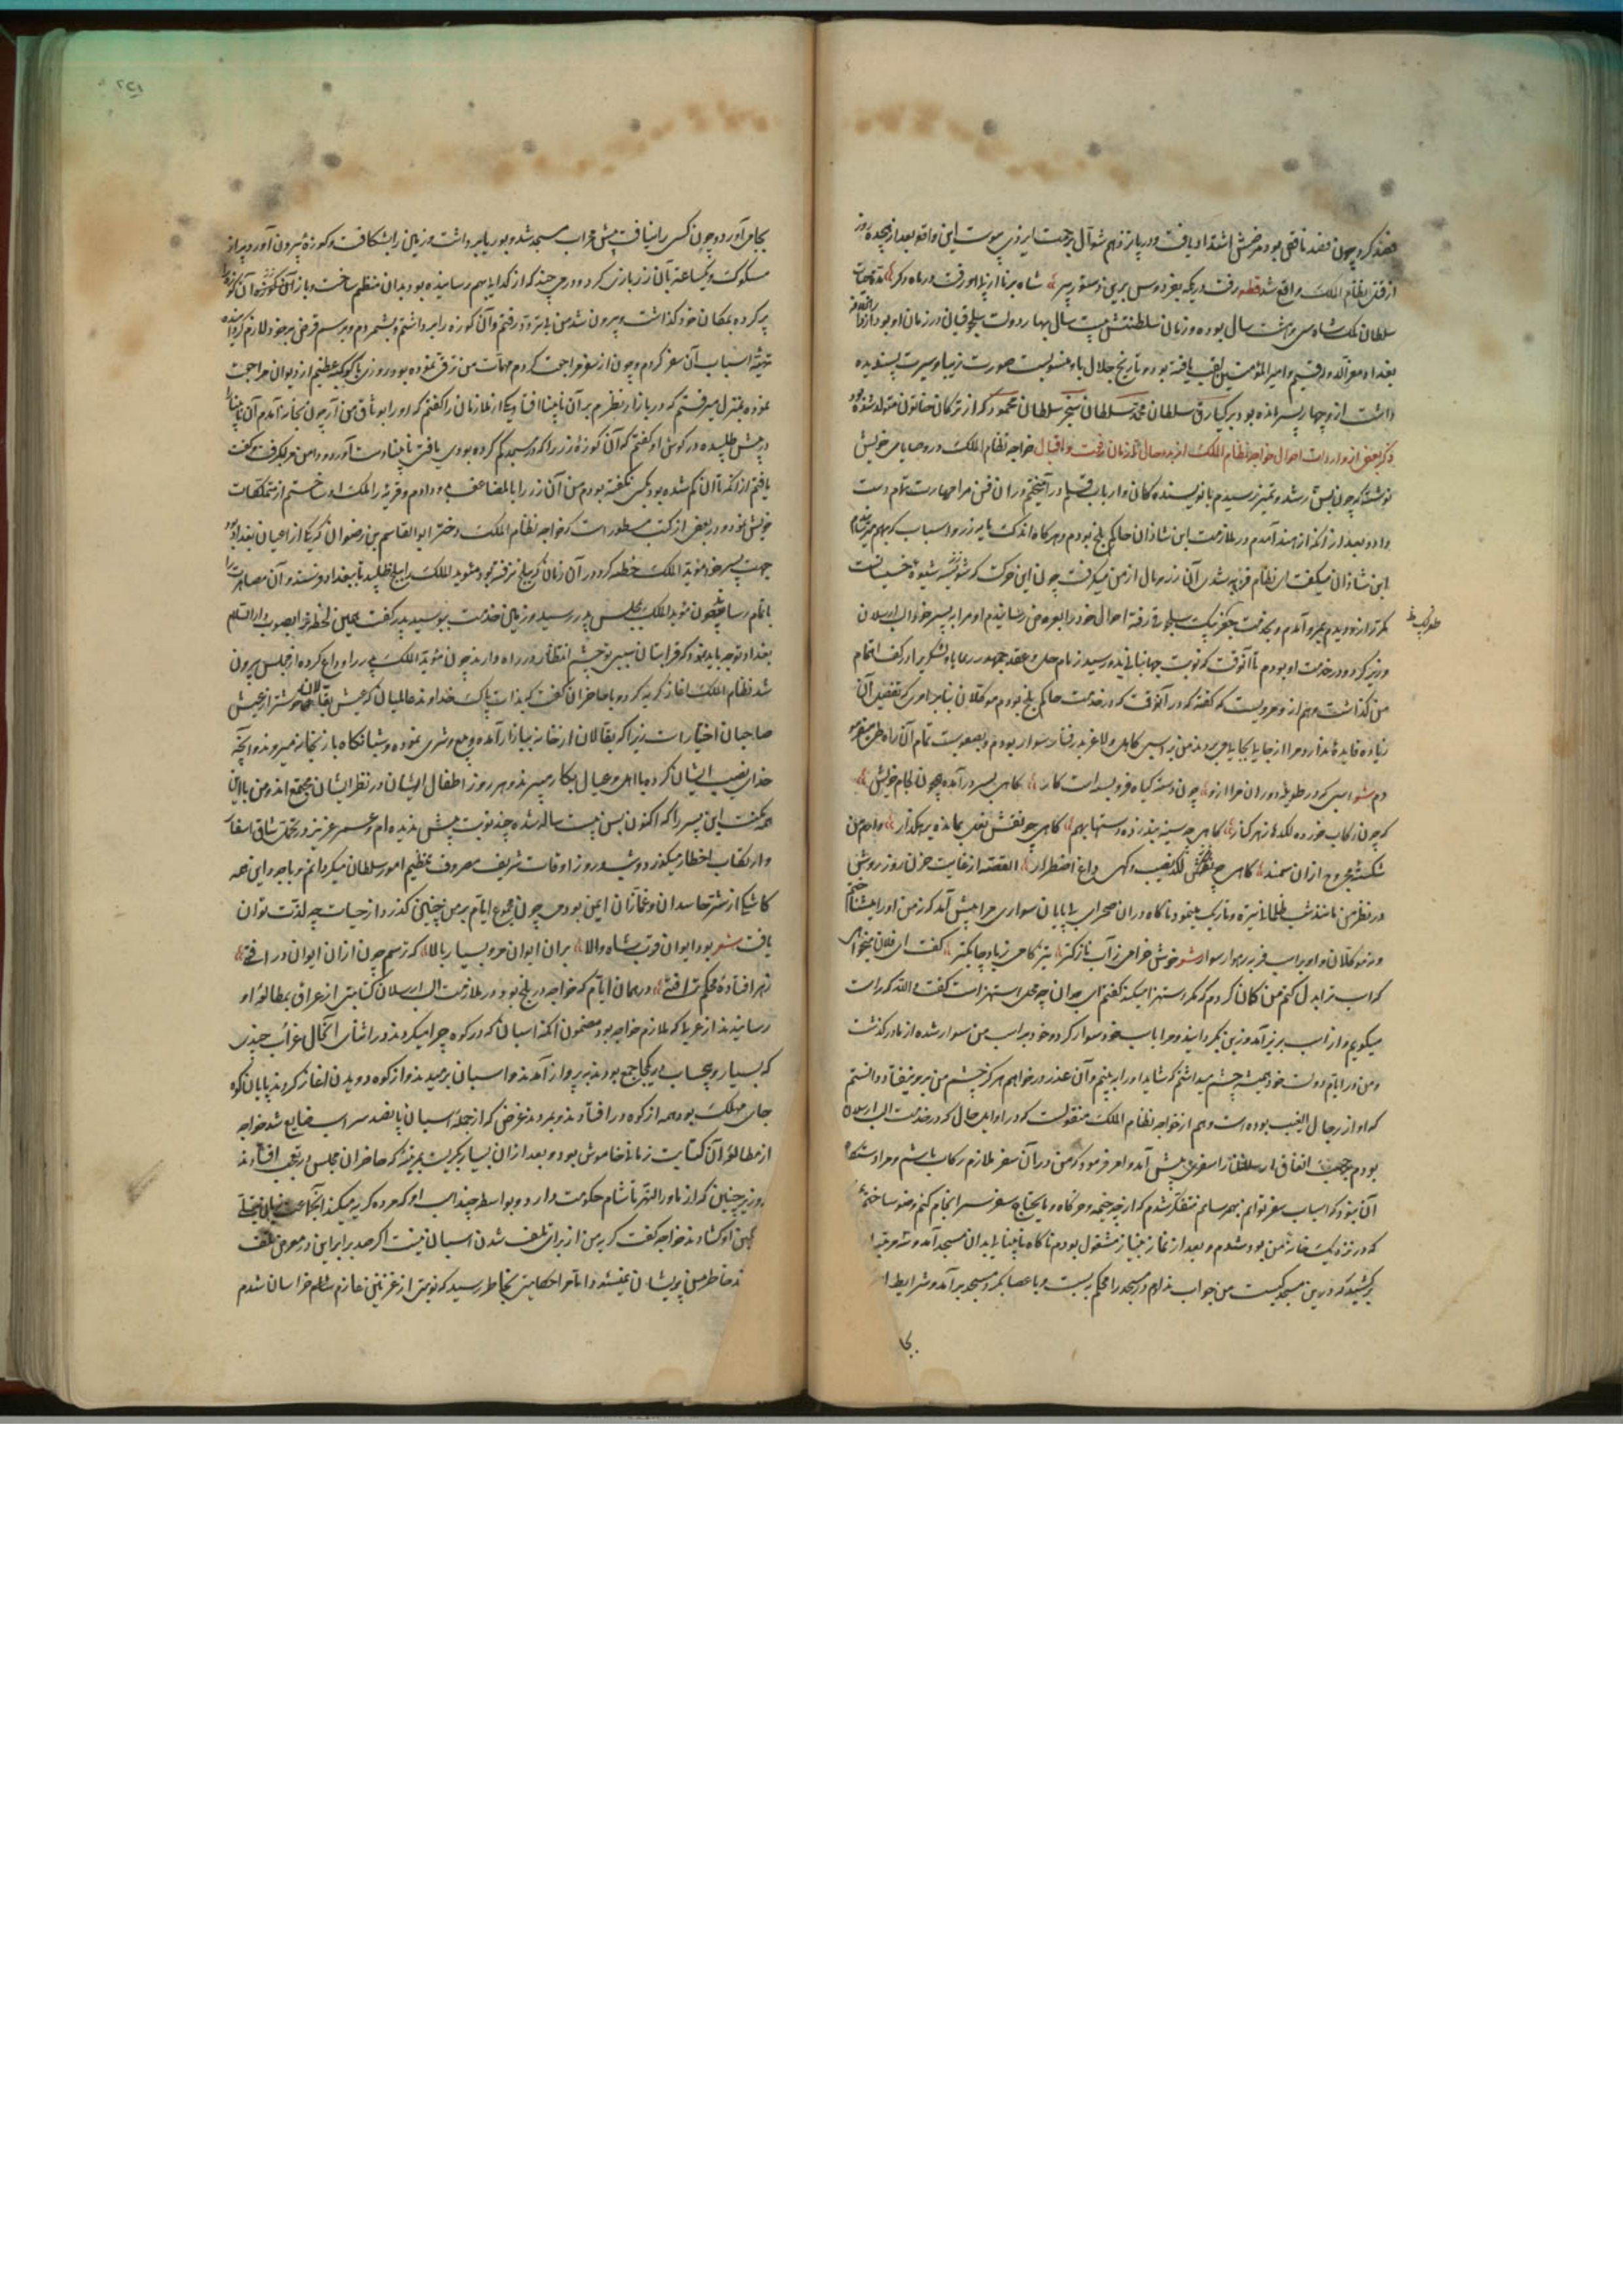 قصد کرد چون فصد ناقص بود مرضش اشتداد یافت و در پانزدهم شوال برحمت ایزدی پیوست این واقعه بعد از هجده روز
از قتل نظام الملک واقع شد قطعه رفت در یکمه بفردوس برین دستور پیر شاه برنا از پی او رفت در ماه دگر مدت حیات
سلطان ملکشاه سی و هشت سال بوده و زمان سلطنتش بیست سال بهار دولت سلجوقیان در زمان او بود از دار الخلافه
بغداد معز الدوله قسیم امیر المؤمنین لقب یافته بود و تاریخ جلالی باو منسوبست صورت زیبا و سیرت پسندیده
داشت از و چهار پسر مانده بود برکیارق سلطان محمد سلطان سنجر سلطان محمود که از ترکان خاتون متولد شده بود
ذکر بعضی از واردات احوال خواجه نظام الملک از بدو حال تا زمان رفعت و اقبال خواجه نظام الملک در وصایای خویش
نوشته که چون بسن رشد و تمیز رسیدم با نویسندگان و ارباب قلم در آمیختم و در آن فن مرا مهارت تمام دست
داد و بعد از آنکه از هند آمدم در ملازمت ابن شاذان حاکم بلخ بودم و هرگاه اندک مایه زر و اسباب که بهم میرسانیدم
ابن شاذان میگفت ای نظام فربه شدی آن زر و مال از من میگرفت چون این حرکت که شیوه خسیسانست
مکرر از و دیدم بمرو آمدم و بخدمت جغربیک سلجوقی رفته احوال خود را بعرض رسانیدم او مرا بپسر خود الب ارسلان
وزیر کرد و در خدمت او بودم تا آنوقت که نوبت جهانبانی بدو رسید زمام حل و عقد جمهور رعایا و لشکر را در کف اهتمام
من گذاشت و هم از و مرویست که گفته که در آنوقت که در خدمت حاکم بلخ بودم موکلان بنابر امری که تفصیل آن
زیاده فایده ندارد مرا از جایی بجایی می بردند من بر اسبی کاهل و لاغر بد رفتار سوار بودم و بصعوبت تمام آن راه طی مینمودم
شعر اسبی که در طویله دوران مرا از و چون دسته گیاه فرو بسته است کار گاهی بسر در آمده چون لجام خویش
که چون رکاب خورده لگدها ز هر کنار گاهی چو سینه بند زده دستها بهم گاهی چو نقش نعل بمانده برهگذار
در نظر من مانند شب ظلمانی تیره و تاریک مینمود ناگاه در آن صحرای بی پایان سواری مرا پیش آمد که نه من او را میشناختم
و نه موکلان و او بر اسب فربه رهوار سوار شعر خوش خرامی ز آب نازکتر تیز گامی ز باد چابکتر گفت ای فلان میخواهی
که اسب ترا بدل کنم من گمان کردم که مگر استهزا میکند گفتم ای جوان چه محل استهزاست گفت و الله که راست
میگویم و از اسب بزیر آمد و زین بگردانید و مرا با اسب خود سوار کرد و خود بر اسب من سوار شده از ما در گذشت
و من در ایام دولت خود همیشه چشم میداشتم که شاید او را ببینم و آن عذر در خواهم هرگز چشم من بر و نیفتاد و دانستم
که او از رجال الغیب بوده است و هم از خواجه نظام الملک منقولست که در اوایل حال که در خدمت الب ارسلان
بودم بحسب اتفاق الب ارسلان را سفری پیش آمد و امر فرمود که من در آن سفر ملازم رکاب باشم و مرا دستگاه
آن نبود که اسباب سفر توانم بهم رسانم متفکر شدم که از چه خیمه و خرگاه و مایحتاج سفر سرانجام کنم وضو ساخته
که در نزدیک خانه من بود شدم و بعد از نماز بنیاز مشغول بودم ناگاه نابینایی بدان مسجد آمد و سه مرتبه
برکشید که در این مسجد کیست من جواب ندادم در مسجد را محکم بربست و با عصا بگرد مسجد بر آمد و شرایط
بجا
بجای آورد و چون کسی را نیافت پیش محراب مسجد شد و بوریا برداشت و زمین را بشکافت و کوزه بیرون آورد پر از زر
مسکوک و یکساعت بآن زر بازی کرد و درمی چند که از گدایی بهم رسانیده بود بدان منظم ساخت و باز آن کوزه
پر کرده بمکان خود گذاشت و بیرون شد من بی تردد رفتم و آن کوزه را برداشتم و بشمردم و برسم قرض بر خود لازم گردانیده
تهیه اسباب آن سفر کردم و چون از سفر مراجعت کردم مهمات من ترقی نموده بود روزی با کوکبه عظیم از دیوان مراجعت
نموده بمنزل میرفتم که در بازار نظرم بر آن نابینا افتاد یکی از ملازمان را گفتم که او را بوثاق من آر چون بخانه آمدم آن نابینا را
در پیش طلبیده در گوش او گفتم که آن کوزه زر را که در مسجد گم کرده بودی یافتی نابینا دست آورد و دامن مرا بگرفت و گفت
یافتم از آنکه تا آن گم شده بود بکس نگفته بودم من آن زر را با لمضاعف بوی دادم و قریه را ملک او ساختم از متملکات
خویش نمود و در بعضی از کتب مسطور است که خواجه نظام الملک دختر ابو القاسم بن رضوان که یکی از اعیان بغداد بود
جهت پسر خود مؤید الملک خطبه کرد و در آن زمان که ببلخ نرفته بود مؤید الملک را ببلخ طلبید تا ببغداد فرستد و آن مصاهرت را
باتمام رساند چون مؤید الملک بمجلس پدر رسید و زمین خدمت ببوسید پدر گفت همین لحظه ترا بصوب دار السلام
بغداد توجه باید نمود که قرابتان بسبب تو چشم انتظار در راه دارند چون مؤید الملک پدر را وداع کرده از مجلس بیرون
شد نظام الملک آغاز گریه کرد و با حاضران گفت که بذات پاک خداوند عالمیان که عیش بقالان خوشتر از عیش
صاحبان اختیار است زیرا که بقالان از خانه ببازار آمده بیع و شری نموده و شبانگاه باز بخانه میروند و آنچه
خدای نصیب ایشان کرده با اهل و عیال بکار میبرند و هر روز اطفال ایشان در نظر ایشان مجتمع اند و من با این
همه مکنت این پسر را که اکنون بسن بیست ساله شده چند نوبت بیش ندیده ام و عمر عزیز در تحمل مشاق اسفار
و ارتکاب اخطار میگذرد و شب و روز اوقات شریف مصروف تنظیم امور سلطان میگردانم و با وجود این همه
کاشکی از شر حاسدان و غمازان ایمن بودمی چون مجموع ایام بر من چنین گذرد از حیات چه لذت توان
یافت شعر بود ایوان قرب شاه والا بر آن ایوان مرو بسیار بالا که ترسم چون از آن ایوان در افتی
ز هر افتاده محکم تر افتی در همان ایام که خواجه در بلخ بود و در ملازمت الب ارسلان کتابتی از عراق بمطالعه او
رسانیدند از عربی که ملازم خواجه بود مضمون آنکه اسبان که در کوه چرا میکردند در اثنای آنحال غرابی چند
که بسیار و بیحساب در یکجا جمع بودند بپرواز آمدند و اسبان برمیدند و از کوه دویدن آغاز کردند پایان کوه
جای مهلک بود همه از کوه در افتادند و بمردند غرض که از جمله اسبان پانصد سر اسب ضایع شد خواجه
از مطالعه آن کتابت زمانی خاموش بود و بعد از آن بسیار بگریست بمرتبه که حاضران مجلس در تعجب افتادند
وزیر چنین که از ماوراء النهر تا شام حکومت دارد و بواسطه چند اسب او که مرده گریه میکند
او گشادند خواجه گفت گریه من از برای تلف شدن اسبان نیست اگر صد برابر این در معرض تلف
خاطر من پریشان نمیشود اما مرا حکایتی بخاطر رسید که نوبتی از غزنین عازم خراسان شدم